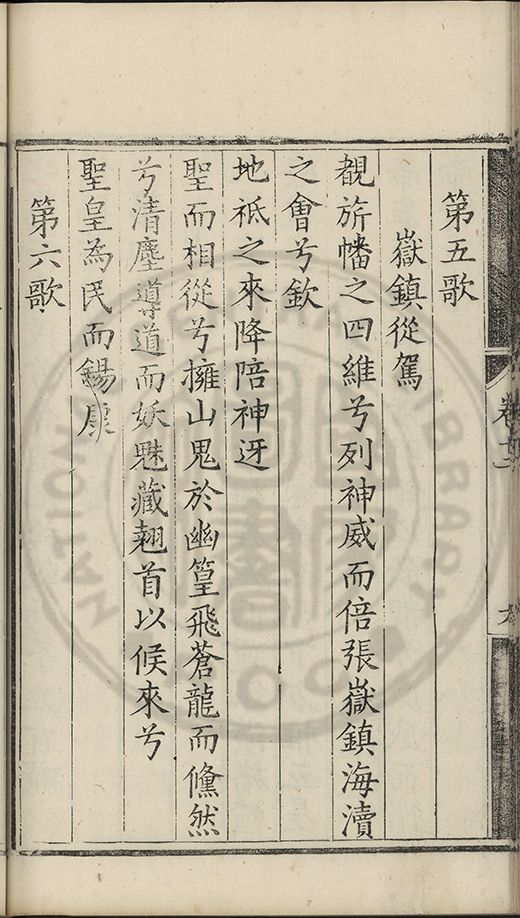 第五歌
嶽鎮從駕
覩旂幡之四維兮列神威而倍張嶽鎮海瀆
之會兮欽
地祇之來降陪神迓
聖而相從兮擁山鬼於幽篁飛蒼龍而儵然
兮清塵導道而妖魅藏翹首以候來兮
聖皇為民而錫康
第六歌